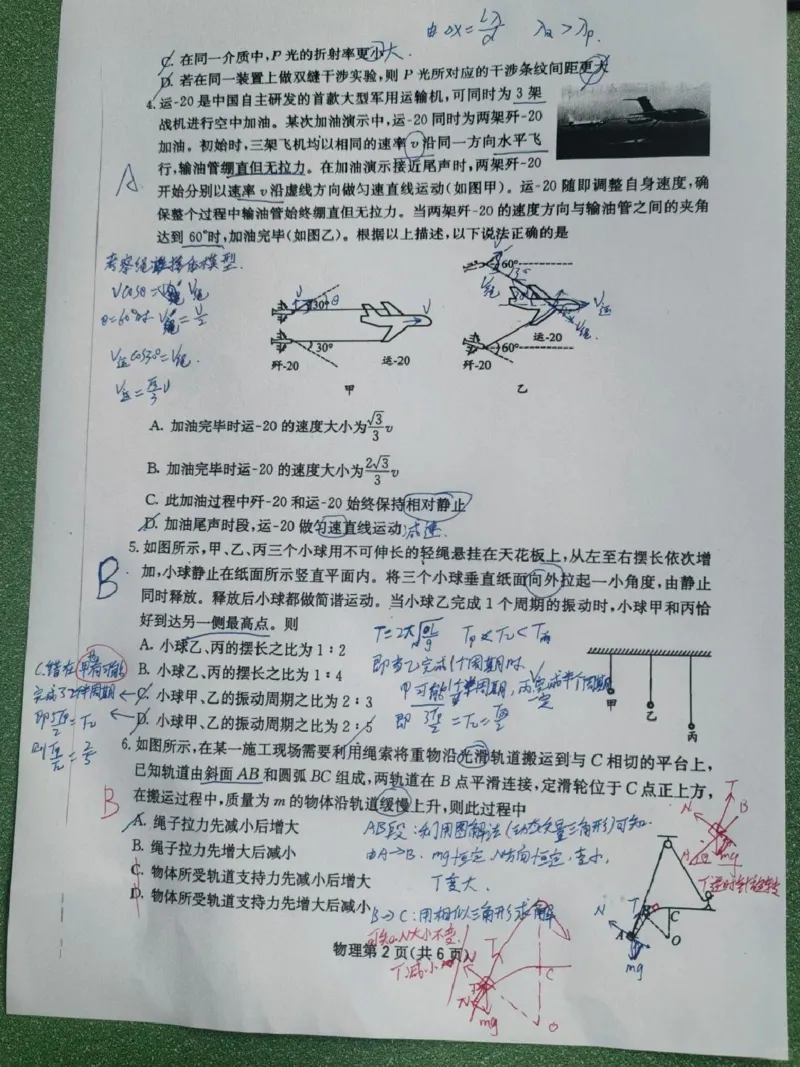 由 Δx = Lλ/d λα > λp.
C. 在同一介质中,P 光的折射率更小 大.
D. 若在同一装置上做双缝干涉实验,则 P 光所对应的干涉条纹间距更大
4. 运-20 是中国自主研发的首款大型军用运输机,可同时为 3 架
战机进行空中加油。某次加油演示中,运-20 同时为两架歼-20
加油。初始时,三架飞机均以相同的速率 v 沿同一方向水平飞
行,输油管绷直但无拉力。在加油演示接近尾声时,两架歼-20
A
开始分别以速率 v 沿虚线方向做匀速直线运动(如图甲)。运-20 随即调整自身速度,确
保整个过程中输油管始终绷直但无拉力。当两架歼-20 的速度方向与输油管之间的夹角
达到 60°时,加油完毕(如图乙)。根据以上描述,以下说法正确的是
Vcosθ = V绳
θ=60°时 V绳 = V/2
V运cos30° = V绳.
V运 = √3/3 V
30° θ V
30°
歼-20 运-20
甲
60°
V绳 V运
60° 运-20
歼-20
乙
A. 加油完毕时运-20 的速度大小为√3/3 v
B. 加油完毕时运-20 的速度大小为2√3/3 v
C. 此加油过程中歼-20 和运-20 始终保持相对静止
D. 加油尾声时段,运-20 做匀速直线运动 减速.
5. 如图所示,甲、乙、丙三个小球用不可伸长的轻绳悬挂在天花板上,从左至右摆长依次增
B
加,小球静止在纸面所示竖直平面内。将三个小球垂直纸面向外拉起一小角度,由静止
同时释放。释放后小球都做简谐运动。当小球乙完成 1 个周期的振动时,小球甲和丙恰
好到达另一侧最高点。则
T甲<T乙<T丙
A. 小球乙、丙的摆长之比为 1∶2
即当乙完成1个周期时.
B. 小球乙、丙的摆长之比为 1∶4
C. 小球甲、乙的振动周期之比为 2∶3
D. 小球甲、乙的振动周期之比为 2∶5
C.错在 甲有可能
甲
乙
丙
6. 如图所示,在某一施工现场需要利用绳索将重物沿光滑轨道搬运到与 C 相切的平台上,
已知轨道由斜面 AB 和圆弧 BC 组成,两轨道在 B 点平滑连接,定滑轮位于 C 点正上方,
B
在搬运过程中,质量为 m 的物体沿轨道缓慢上升,则此过程中
A. 绳子拉力先减小后增大
AB段:利用图解法(动态矢量三角形)可知.
B. 绳子拉力先增大后减小
由A→B. mg恒定 N方向恒定,变小,
C. 物体所受轨道支持力先减小后增大
T变大.
D. 物体所受轨道支持力先增大后减小
B→C:用相似三角形求解
可知:N大小不变.
T减小
N T B
A mg
N T B C
A O
mg
T
N
mg
C
O
物理第 2 页(共 6 页)